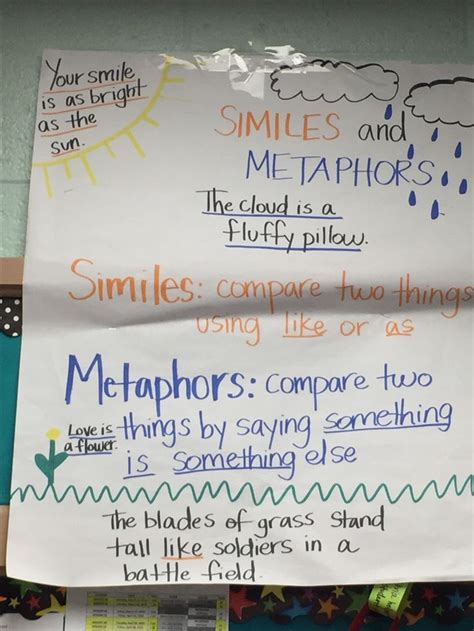 Your smile
is as bright
as the
sun.
SIMILES and
METAPHORS
The cloud is a
fluffy pillow.
Similes: compare two things
using like or as
Metaphors: compare two
Love is
a flower.
things by saying something
is something else
The blades of grass stand
tall like soldiers in a
battle field.